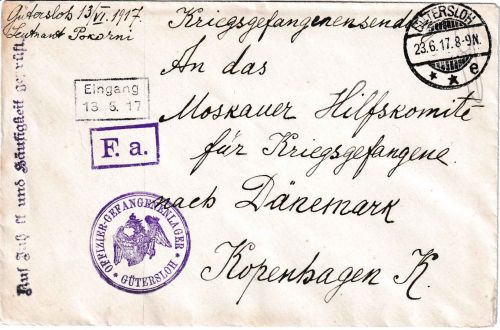 Gütersloh 13/VI. 1917.
Leutnant Pokorni
Kriegsgefangenensend
An das
Moskauer Hilfskomite
für Kriegsgefangene
nach Dänemark
Kopenhagen K.
Eingang
13.6.17
F. a.
OFFIZIER-GEFANGENENLAGER
* GÜTERSLOH *
GÜTERSLOH
23.6.17.8-9N.
* * e
Auf und Häufigkeit geprüft